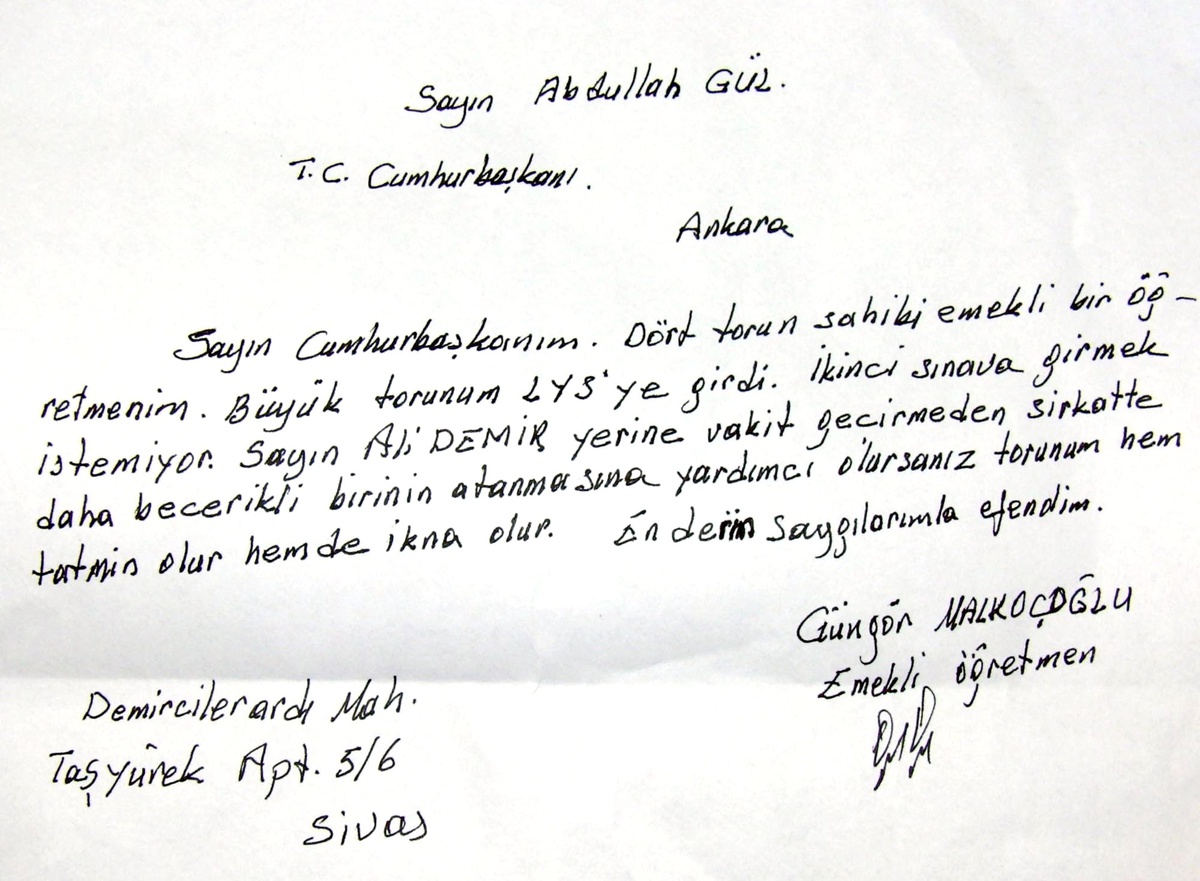 Sayın Abdullah GÜL.
T.C. Cumhurbaşkanı.
Ankara
Sayın Cumhurbaşkanım. Dört torun sahibi emekli bir öğ-
retmenim. Büyük torunum LYS'ye girdi. İkinci sınava girmek
istemiyor. Sayın Ali DEMİR yerine vakit geçirmeden sirkatte
daha becerikli birinin atanmasına yardımcı olursanız torunum hem
tatmin olur hemde ikna olur. En derin saygılarımla efendim.
Güngör MALKOÇOĞLU
Emekli öğretmen
Demircilerardı Mah.
Taşyürek Apt. 5/6
Sivas